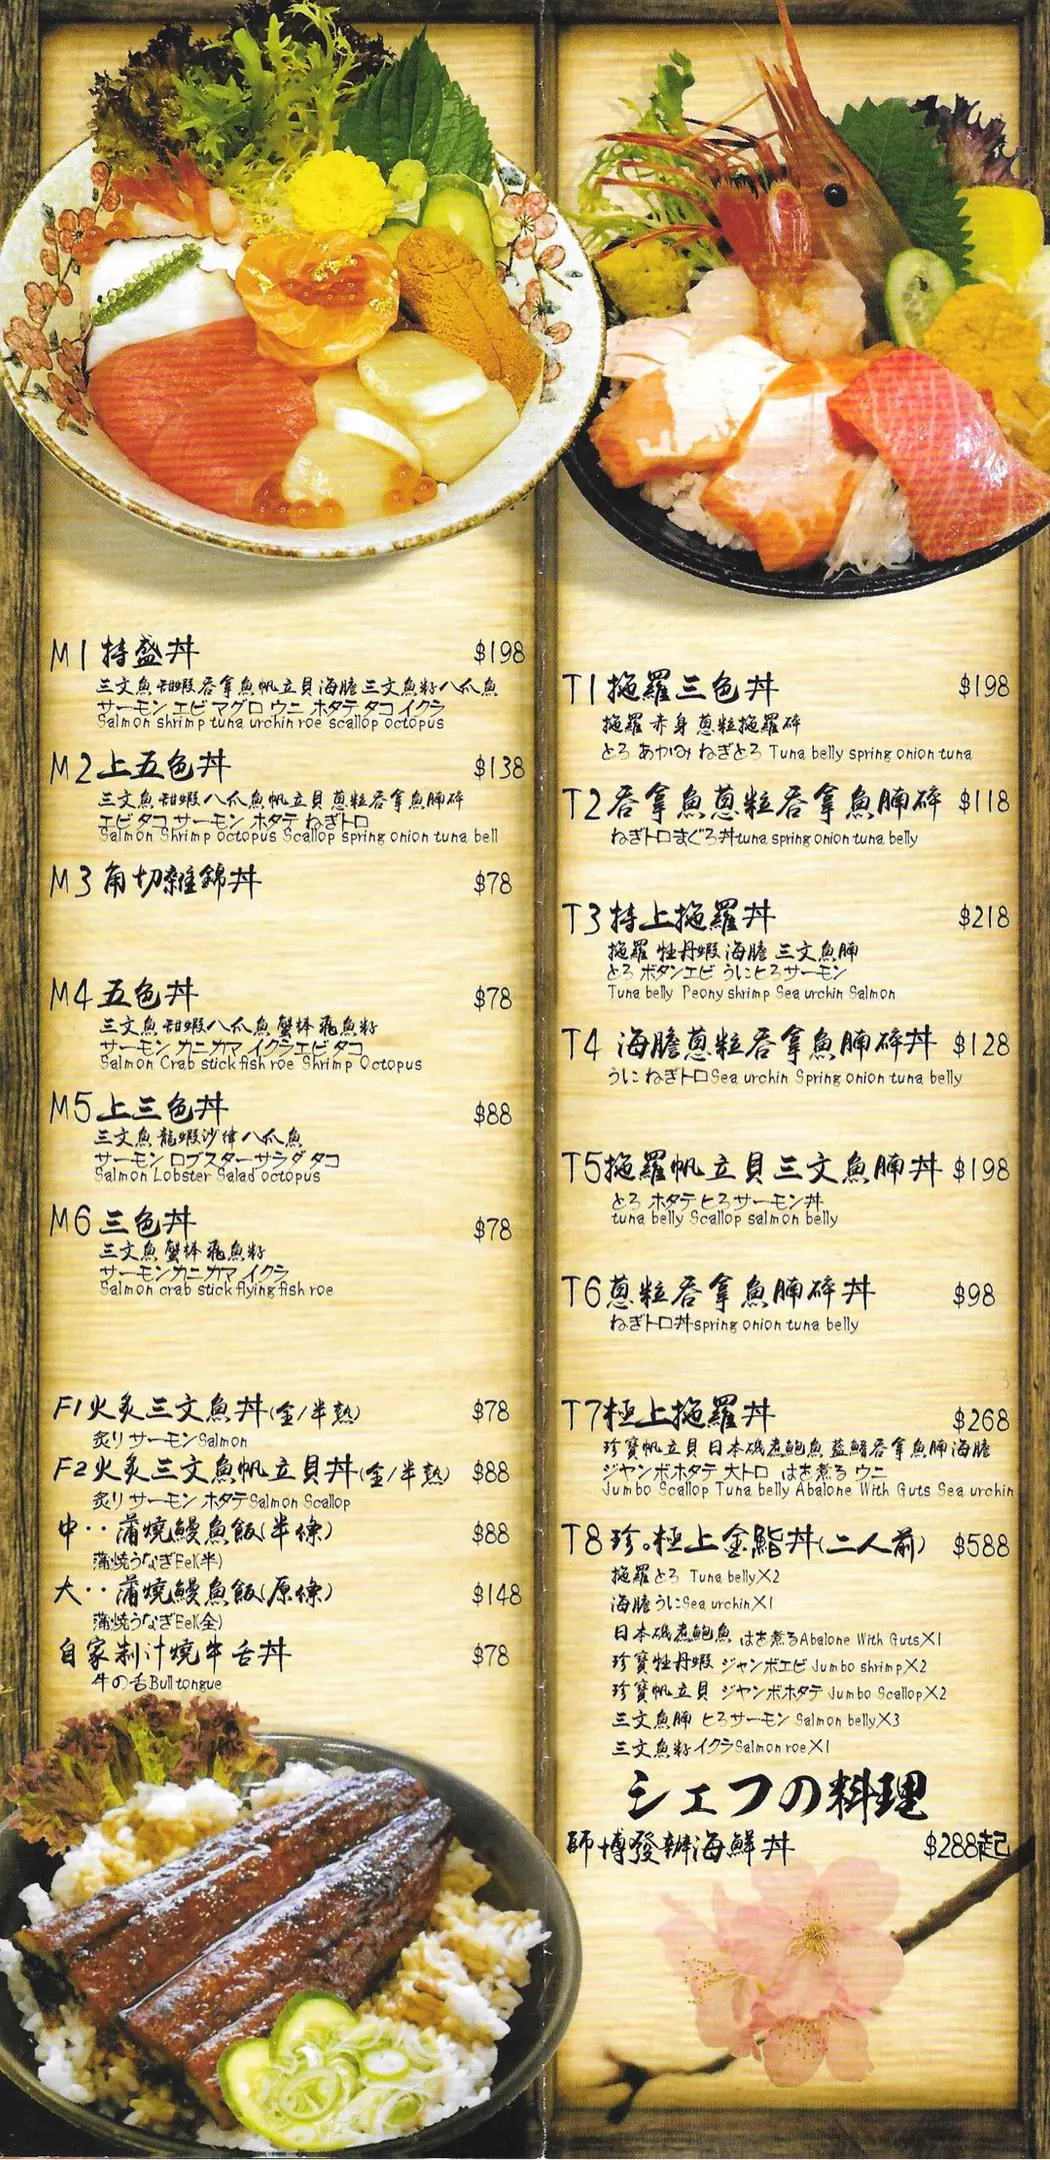 M1特盛丼 $198
三文魚 甜蝦 吞拿魚 帆立貝 海膽 三文魚籽 八爪魚
サーモン エビ マグロ ウニ ホタテ タコ イクラ
Salmon shrimp tuna urchin roe scallop octopus
M2上五色丼 $138
三文魚 甜蝦 八爪魚 帆立貝 蔥粒吞拿魚腩碎
エビ タコ サーモン ホタテ ねぎトロ
Salmon Shrimp octopus Scallop spring onion tuna bell
M3角切雜錦丼 $78
M4五色丼 $78
三文魚 甜蝦 八爪魚 蟹棒 飛魚籽
サーモン カニカマ イクラ エビ タコ
Salmon Crab stick fish roe Shrimp Octopus
M5上三色丼 $88
三文魚 龍蝦沙律 八爪魚
サーモン ロブスターサラダ タコ
Salmon Lobster Salad octopus
M6三色丼 $78
三文魚 蟹棒 飛魚籽
サーモン カニカマ イクラ
Salmon crab stick flying fish roe
F1火炙三文魚丼(全/半熟) $78
炙り サーモンSalmon
F2火炙三文魚帆立貝丼(全/半熟) $88
炙り サーモン ホタテSalmon Scallop
中‥蒲燒鰻魚飯(半條) $88
蒲焼うなぎEel(半)
大‥蒲燒鰻魚飯(原條) $148
蒲焼うなぎEel(全)
自家制汁燒牛舌丼 $78
牛の舌Bull tongue
T1拖羅三色丼 $198
拖羅 赤身 蔥粒拖羅碎
とろ あかみ ねぎとろ Tuna belly spring onion tuna
T2吞拿魚蔥粒吞拿魚腩碎 $118
ねぎトロまぐろ丼tuna spring onion tuna belly
T3特上拖羅丼 $218
拖羅 牡丹蝦 海膽 三文魚腩
とろ ボタンエビ うにとろサーモン
Tuna belly Peony shrimp Sea urchin Salmon
T4海膽蔥粒吞拿魚腩碎丼 $128
うに ねぎトロSea urchin Spring onion tuna belly
T5拖羅帆立貝三文魚腩丼 $198
とろ ホタテとろサーモン丼
tuna belly Scallop salmon belly
T6蔥粒吞拿魚腩碎丼 $98
ねぎトロ丼spring onion tuna belly
T7極上拖羅丼 $268
珍寶帆立貝 日本磯煮鮑魚 藍鰭吞拿魚腩 海膽
ジャンボホタテ 大トロ はき煮る ウニ
Jumbo Scallop Tuna belly Abalone With Guts Sea urchin
T8珍。極上金鮨丼(二人前) $588
拖羅とろ Tuna belly×2
海膽うにSea urchin×1
日本磯煮鮑魚 はき煮るAbalone With Guts×1
珍寶牡丹蝦 ジャンボエビ Jumbo shrimp×2
珍寶帆立貝 ジャンボホタテ Jumbo Scallop×2
三文魚腩 とろサーモン Salmon belly×3
三文魚籽イクラSalmon roe×1
シェフの料理
師博發辦海鮮丼 $288起